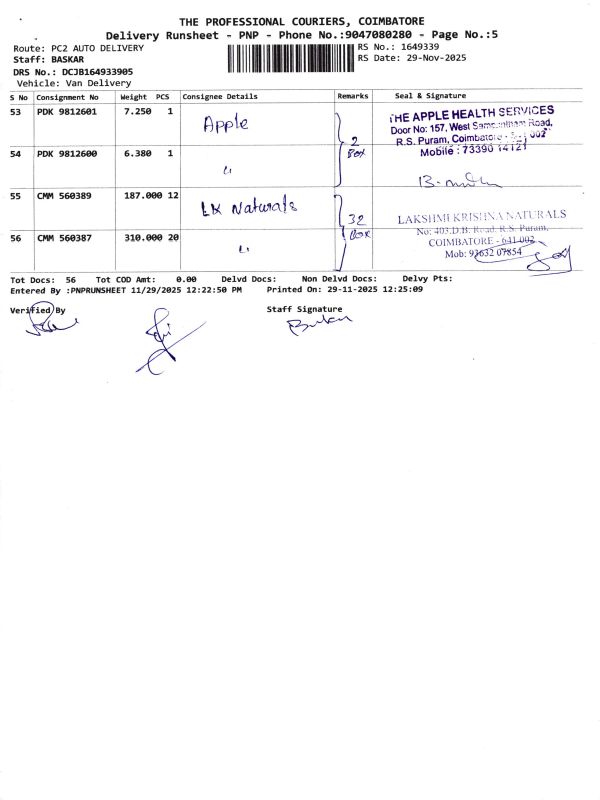 THE PROFESSIONAL COURIERS, COIMBATORE
Delivery Runsheet - PNP - Phone No.:9047080280 - Page No.:5
Route: PC2 AUTO DELIVERY RS No.: 1649339
Staff: BASKAR RS Date: 29-Nov-2025
DRS No.: DCJB164933905
Vehicle: Van Delivery
S No Consignment No Weight PCS Consignee Details Remarks Seal & Signature
53 PDK 9812601 7.250 1 Apple
THE APPLE HEALTH SERVICES
Door No: 157, West Sambantham Road,
R.S. Puram, Coimbatore - 002
Mobile : 73390 14121
2 Box
54 PDK 9812600 6.380 1 "
55 CMM 560389 187.000 12 LK Naturals
32 Box
LAKSHMI KRISHNA NATURALS
No: 403,D.B. Road, R.S. Puram,
COIMBATORE - 641 002
Mob: 93632 07854
56 CMM 560387 310.000 20 "
Tot Docs: 56 Tot COD Amt: 0.00 Delvd Docs: Non Delvd Docs: Delvy Pts:
Entered By :PNPRUNSHEET 11/29/2025 12:22:50 PM Printed On: 29-11-2025 12:25:09
Verified By Staff Signature